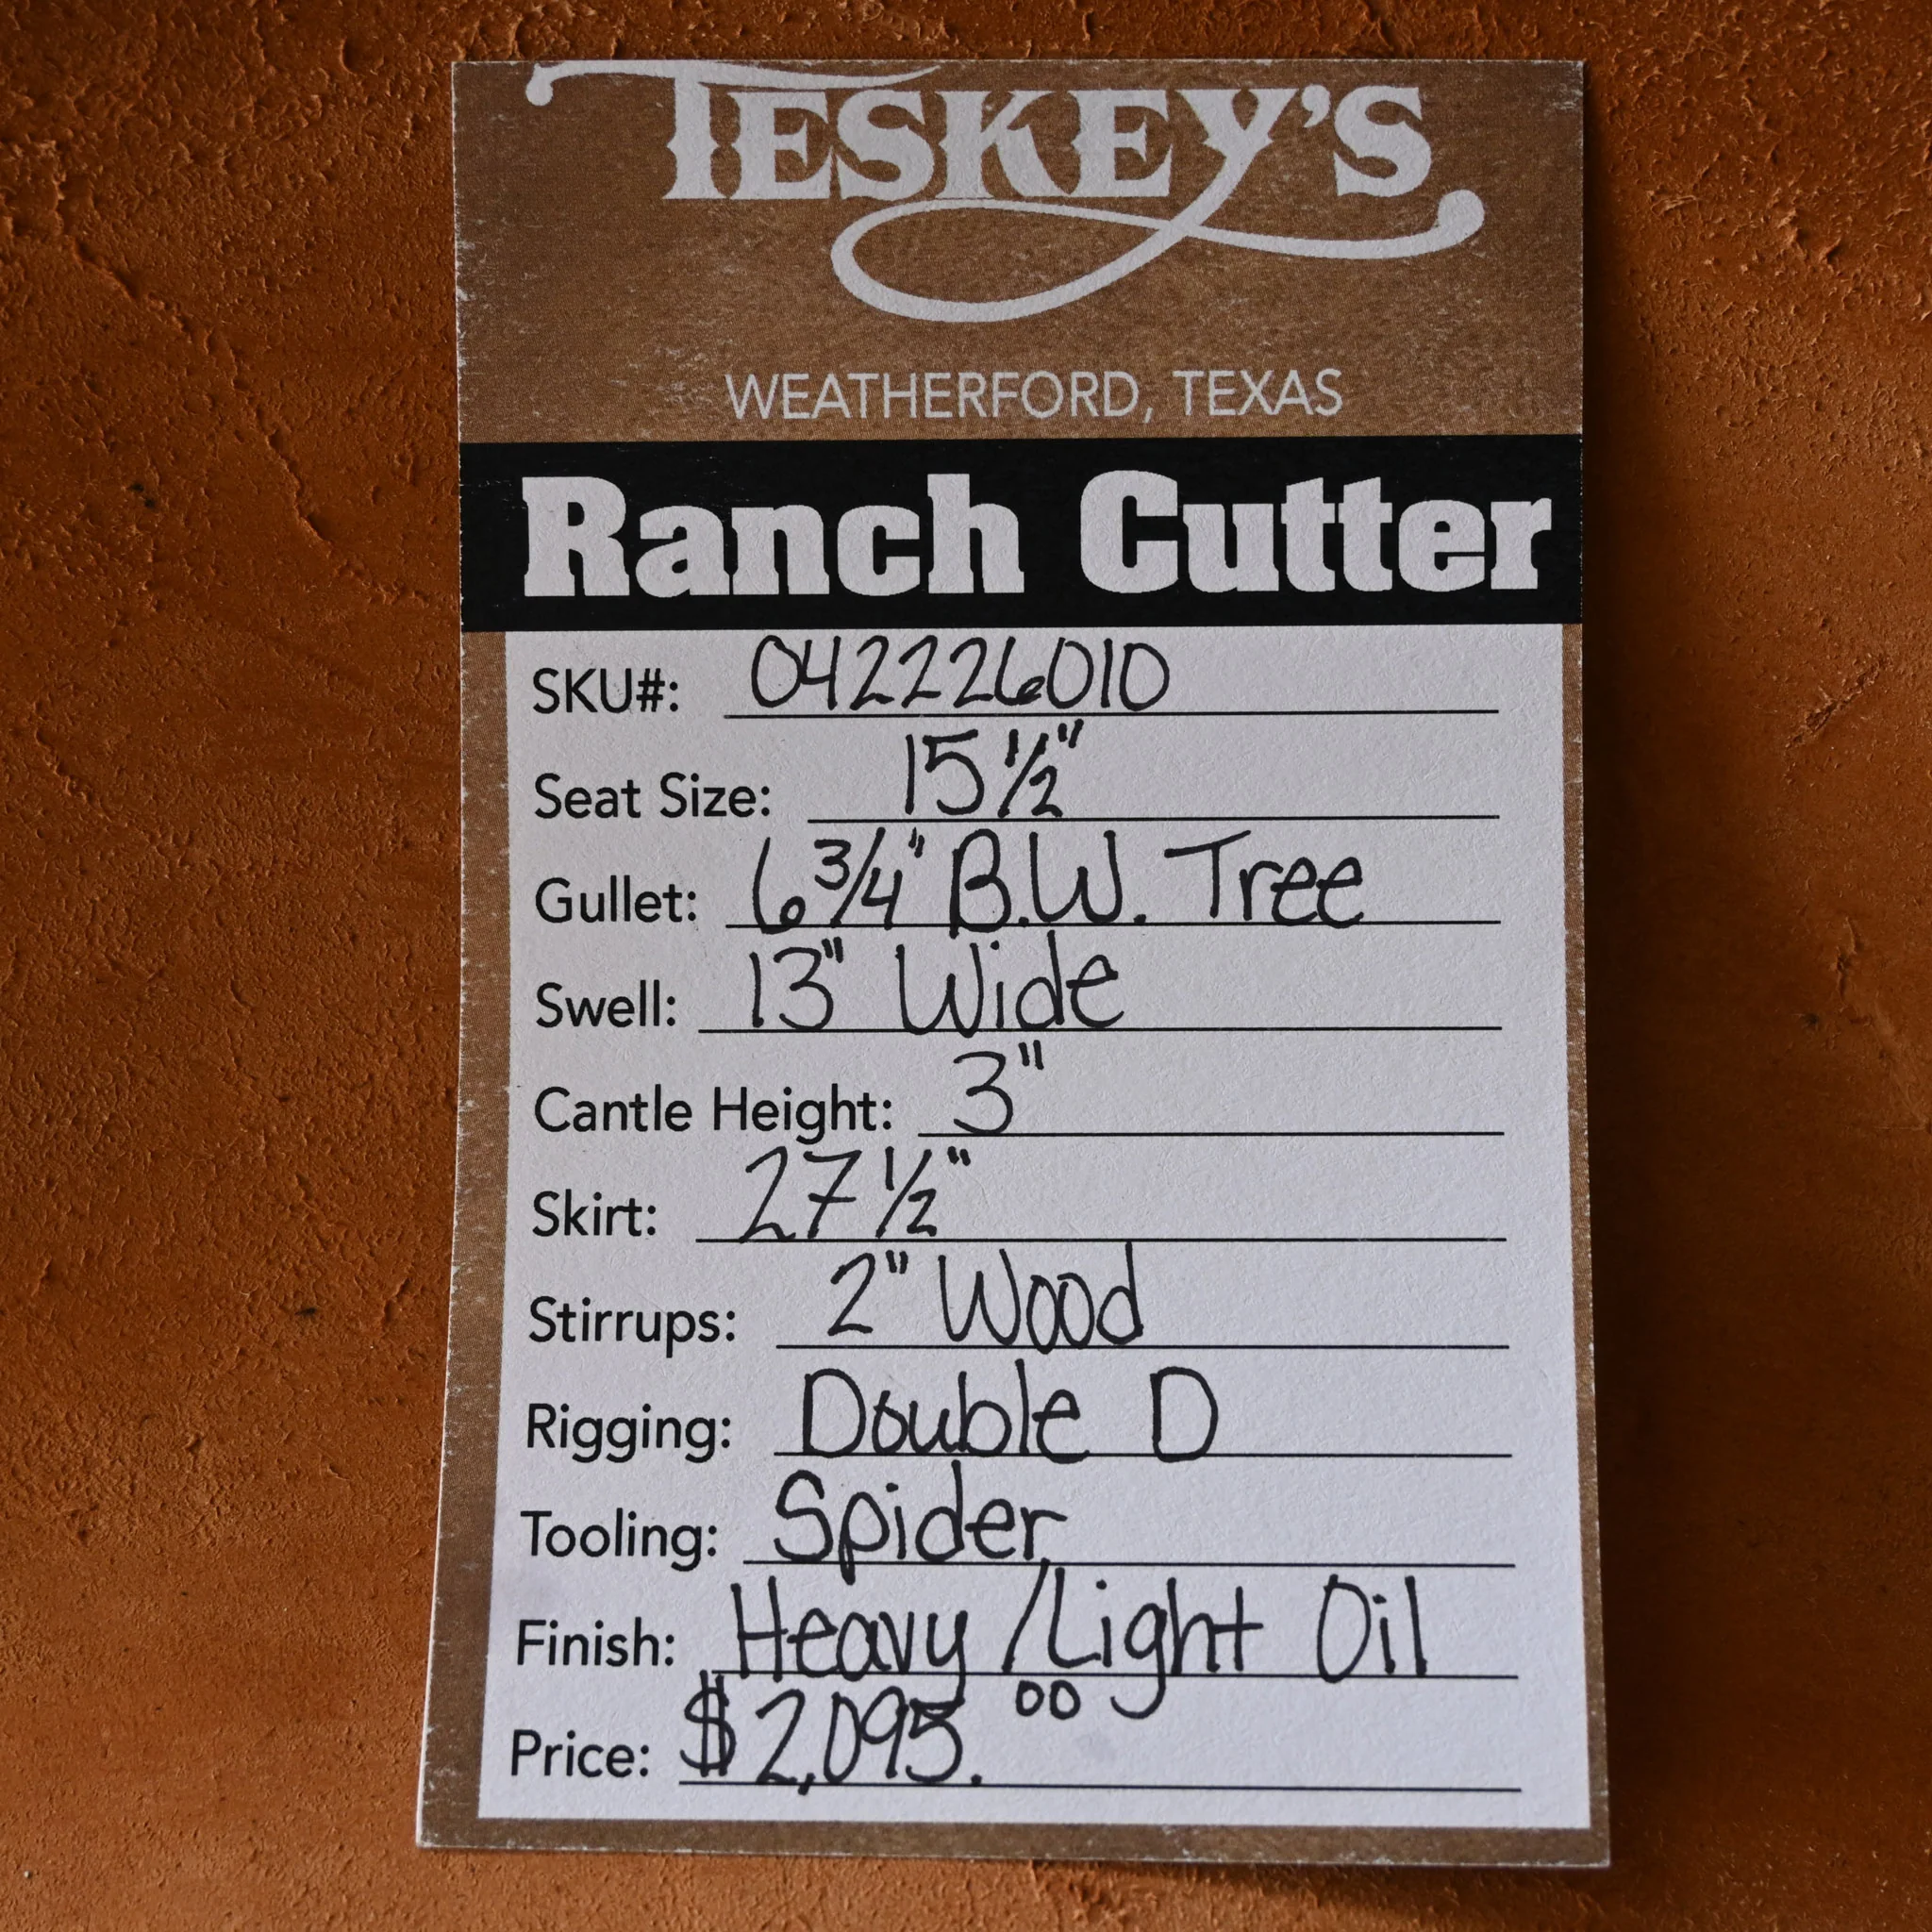 TESKEY'S
WEATHERFORD, TEXAS
Ranch Cutter
SKU#: 042226010
Seat Size: 15 1/2"
Gullet: 6 3/4" B.W. Tree
Swell: 13" Wide
Cantle Height: 3"
Skirt: 27 1/2"
Stirrups: 2" Wood
Rigging: Double D
Tooling: Spider
Finish: Heavy/Light Oil
Price: $2,095.00